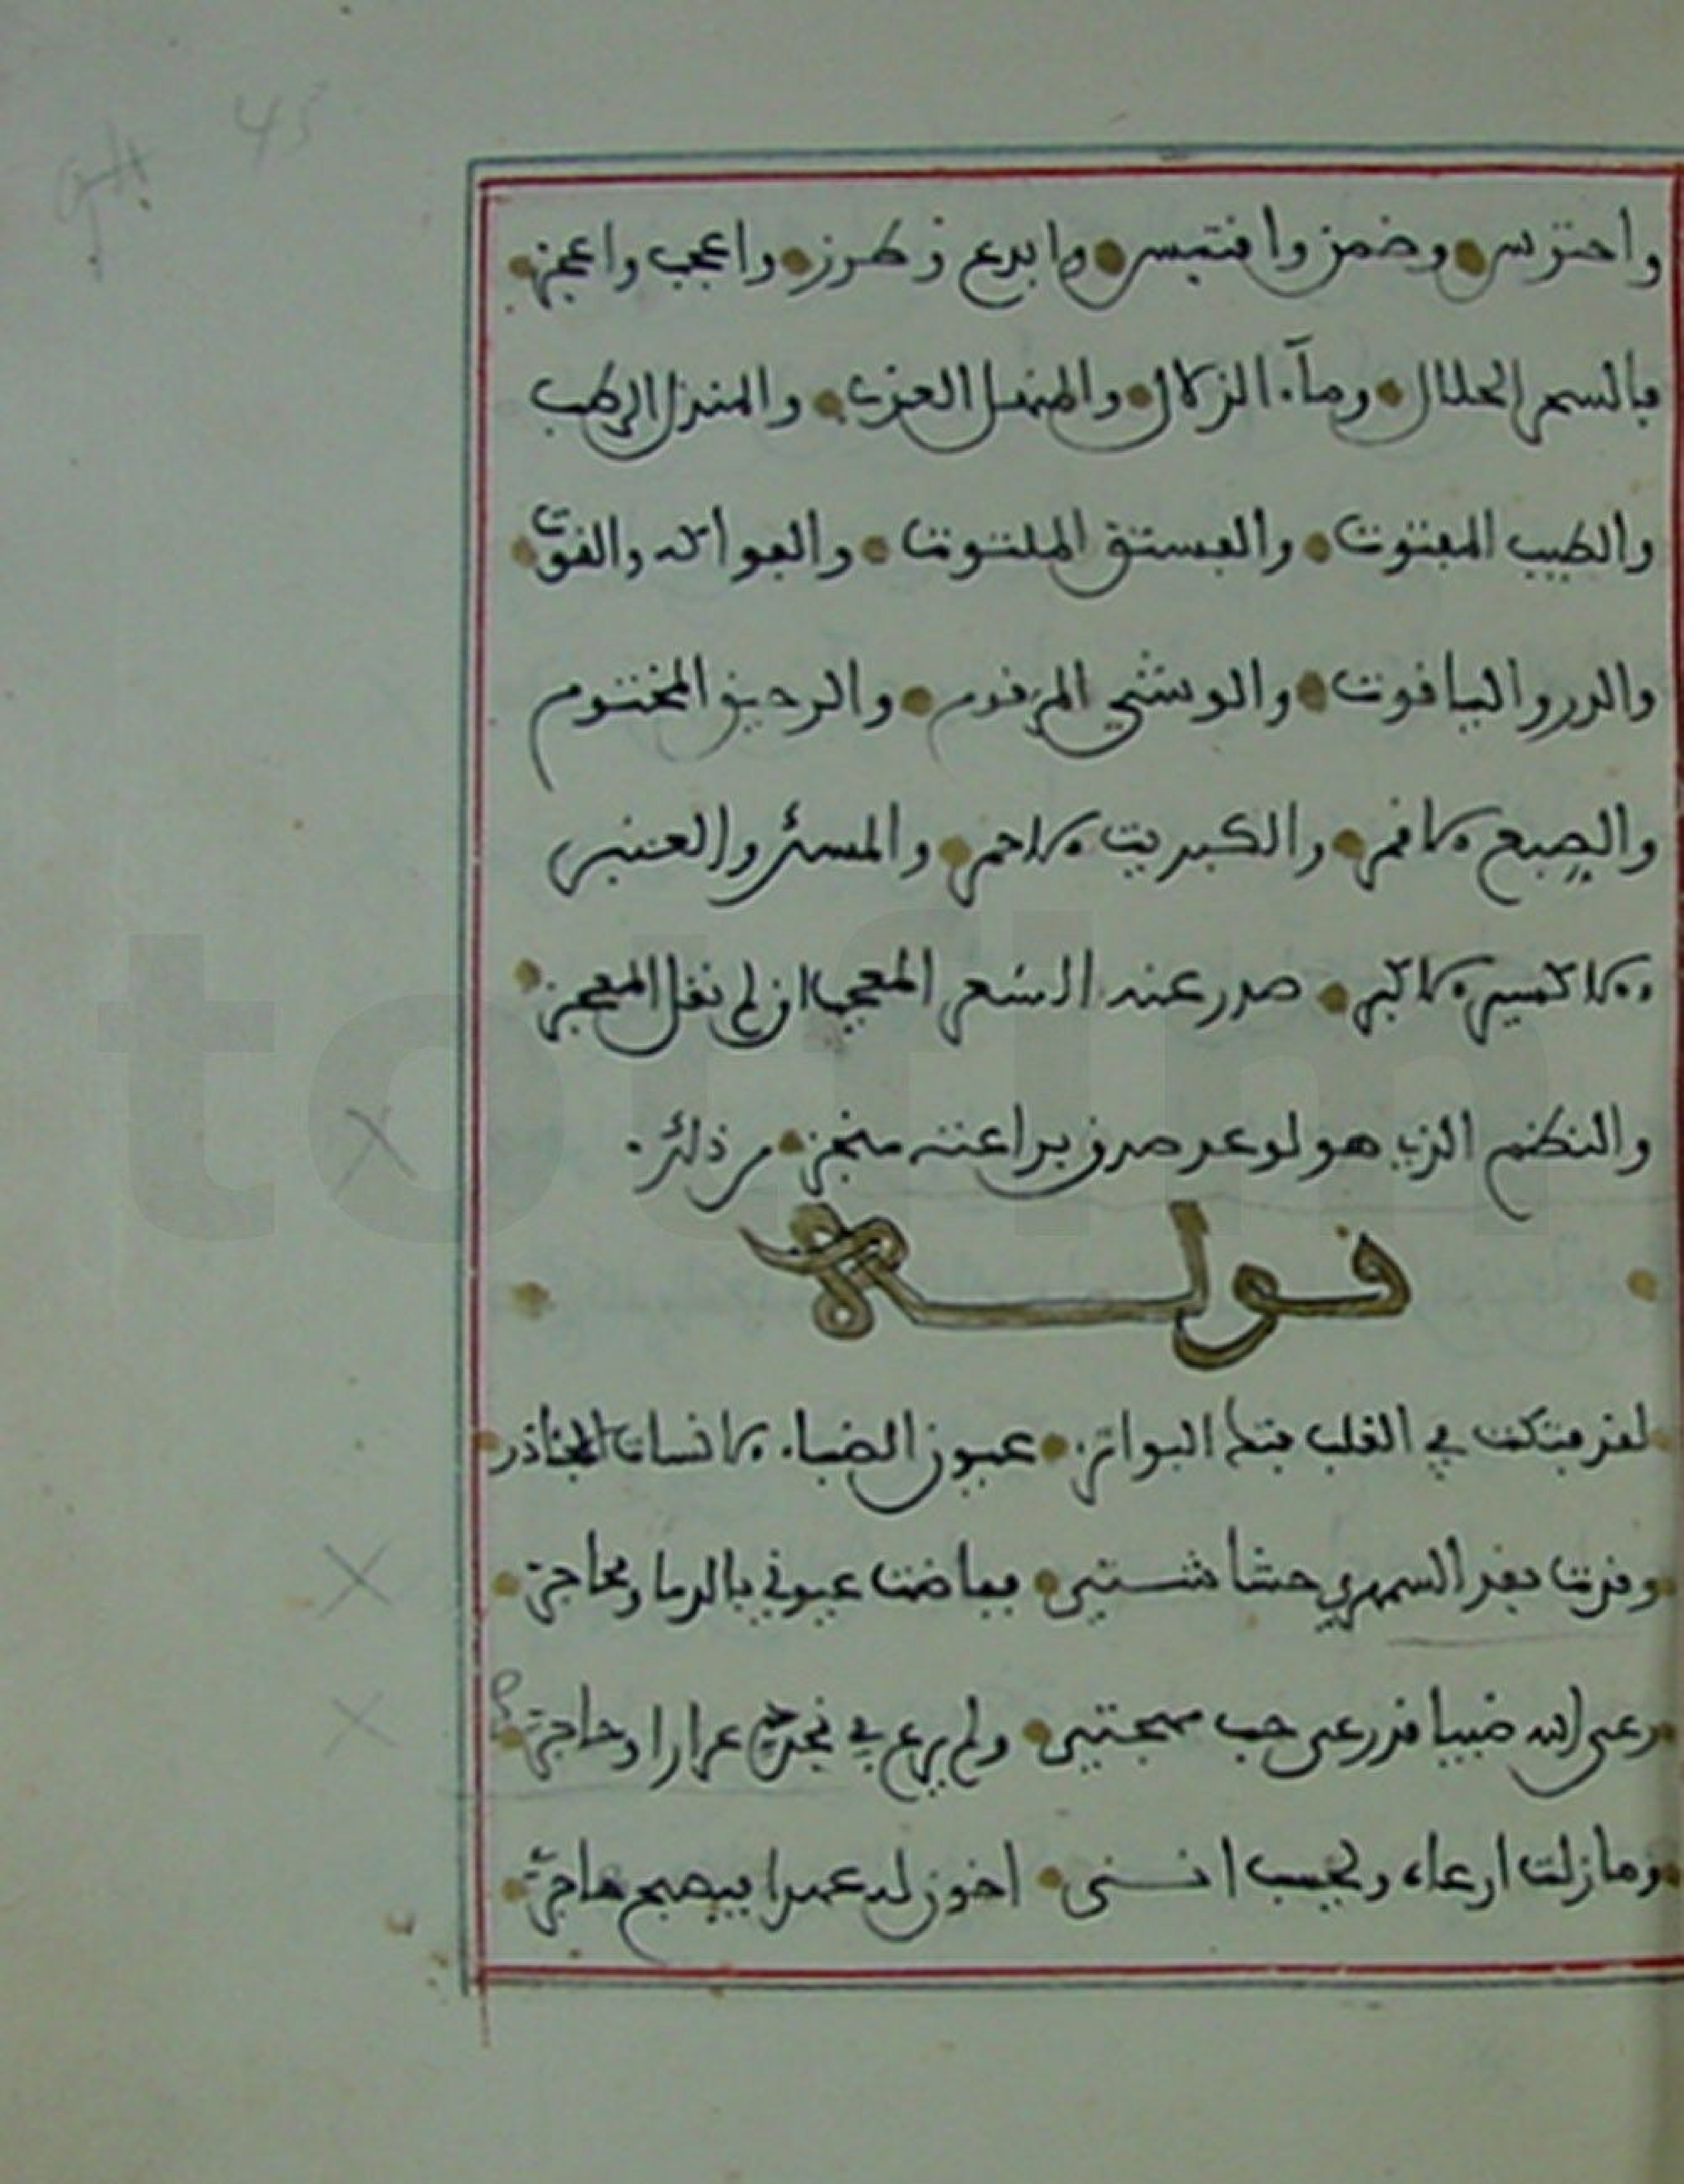 45
واحترس • وضمن واقتبس • وابدع وطرز • واعجب واعجز •
بالسحر الحلال • وماء الزلال • والمنهل العذب • والمنزل الرطب
والطيب المفتوت • والفستق الملتوت • والفواكه والقوت •
والدر والياقوت • والوشي المرقوم • والرحيق المختوم
والصبغ الاقمر • والكبريت الاحمر • والمسك والعنبر
والاكسير الاكبر • صدر عنه الشعر المعجب ان لم نقل المعجز •
والنظم الذي هو لوعد صدق براعته منجز • من ذلك
قوله
لقد فتكت في القلب فتك البواتر • عيون الضباء الانسات الجئاذر
وقدت بقد السمهري حشاشتي • ففاضت عيوني بالدما ومحاجر •
رعى الله ضبيا قد رعى حب مهجتي • ولم يرع في نجد عرارا وحاجر •
وما زلت ارعاه ويحسب انني • اخون له عهدا فيصبح هاجر •
toutim